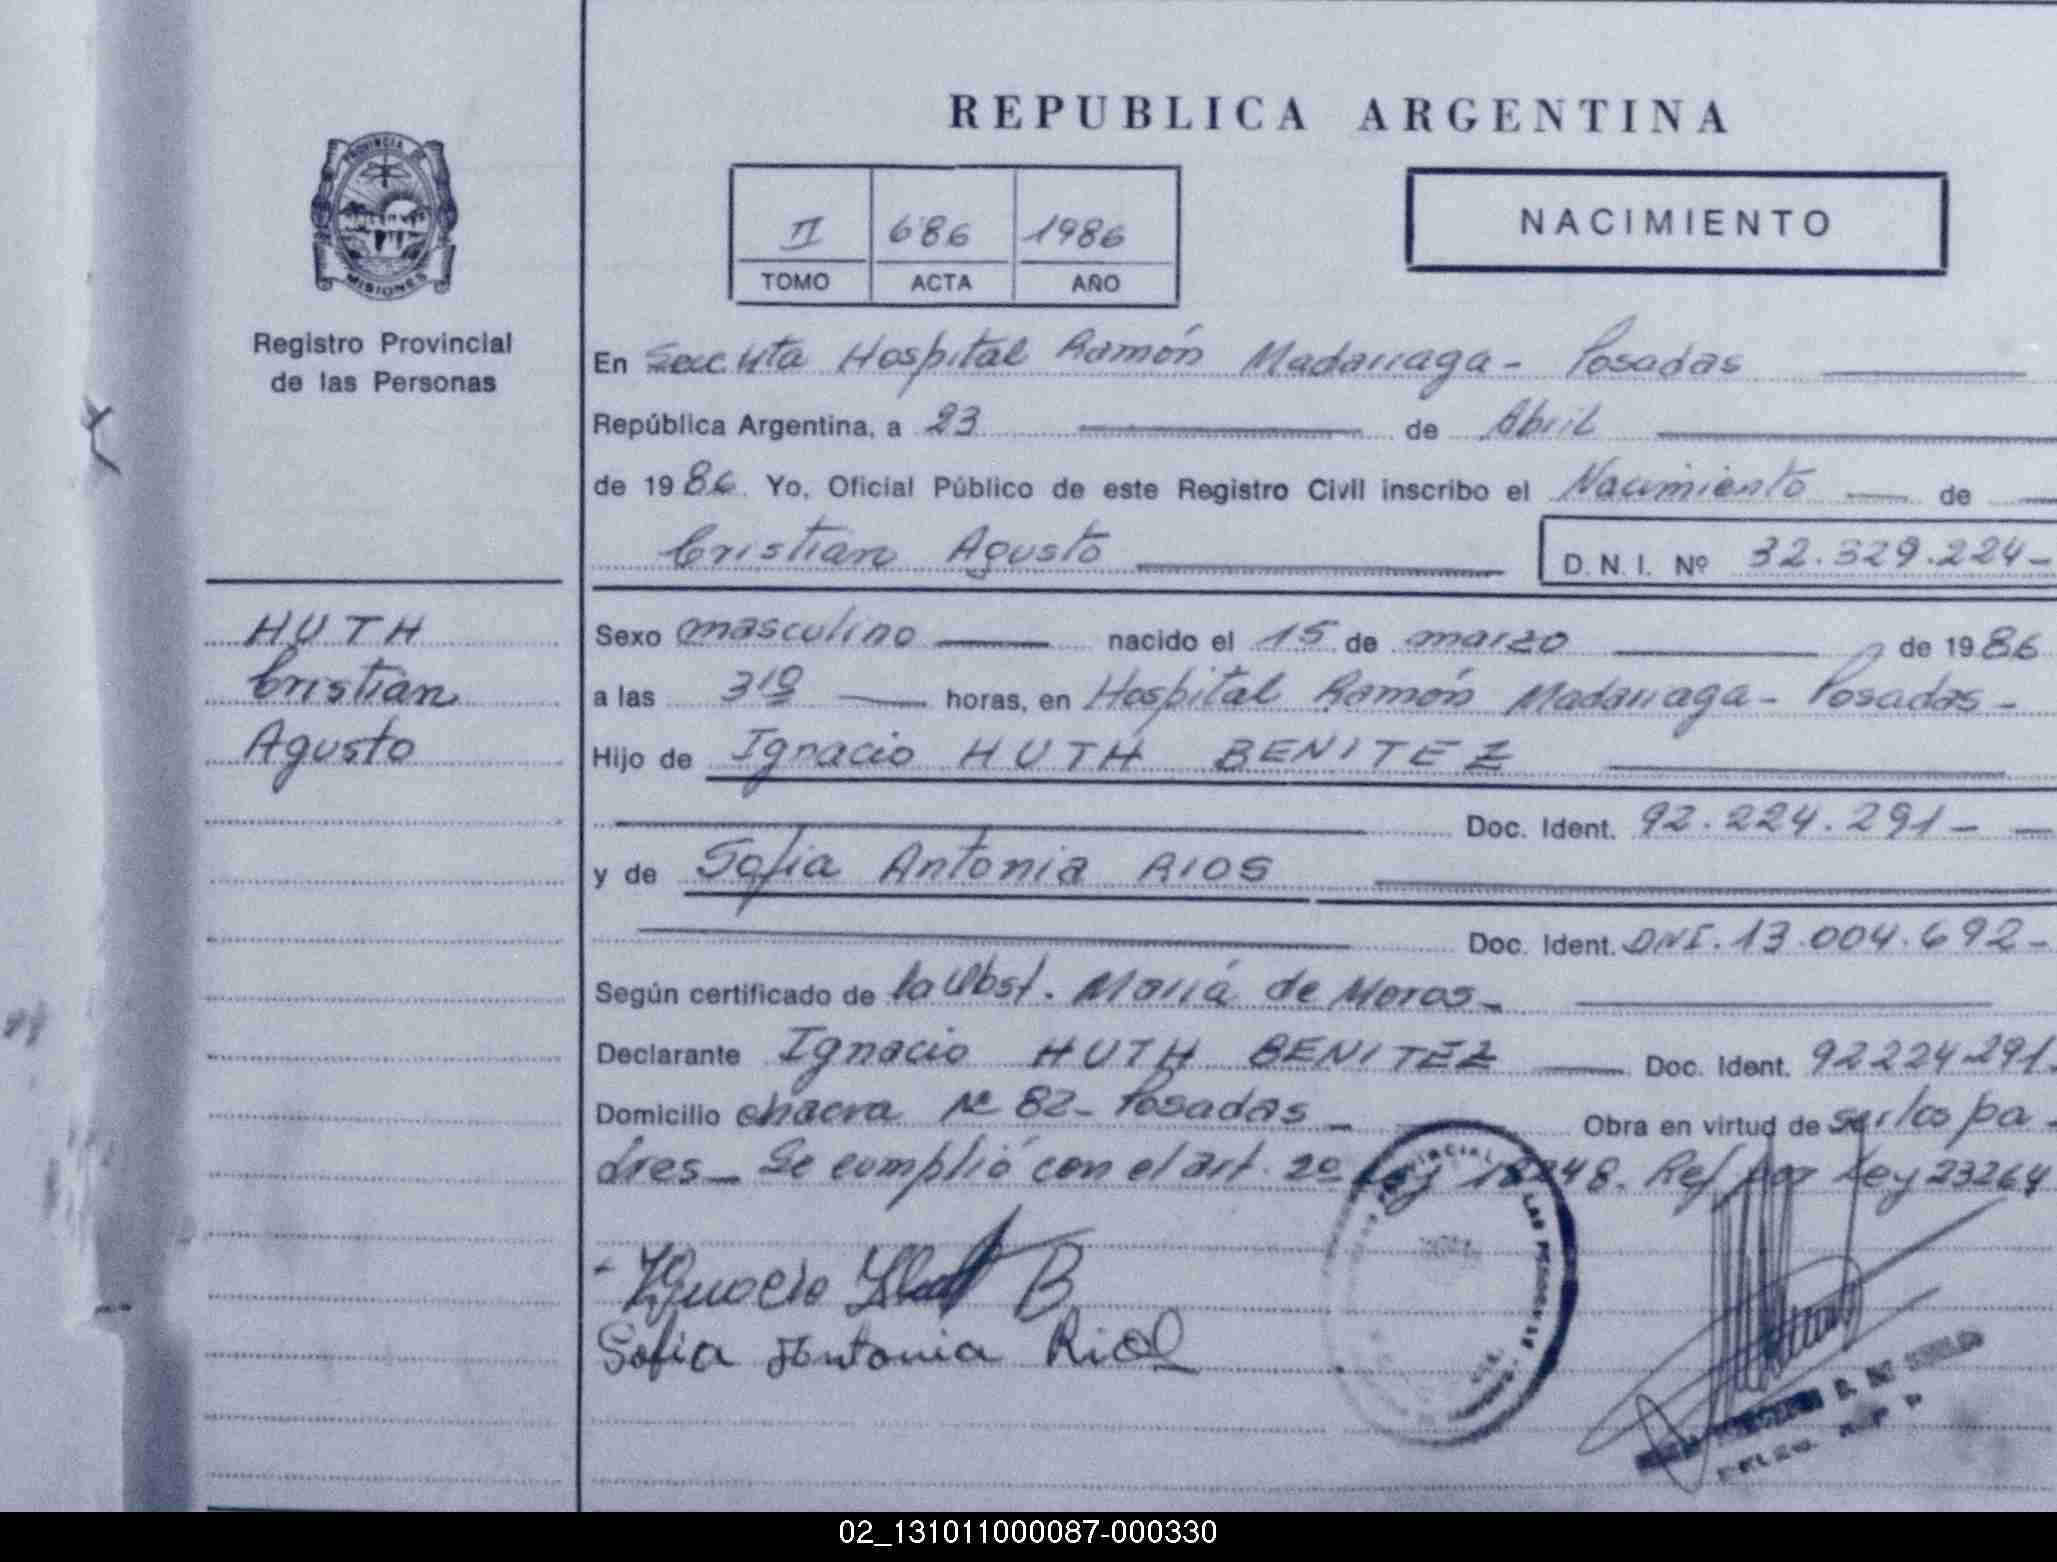 REPUBLICA ARGENTINA
PROVINCIA DE
MISIONES
Registro Provincial
de las Personas
II 686 1986
TOMO ACTA AÑO
NACIMIENTO
En Hospital Ramón Madariaga - Posadas
República Argentina, a 23 de Abril
de 1986. Yo, Oficial Público de este Registro Civil inscribo el Nacimiento de
Cristian Agusto
D. N. I. Nº 32.329.224-
HUTH
Cristian
Agusto
Sexo masculino nacido el 15 de marzo de 1986
a las 3 10 horas, en Hospital Ramón Madariaga - Posadas -
Hijo de Ignacio HUTH BENITEZ
Doc. Ident. 92.224.291-
y de Sofia Antonia RIOS
Doc. Ident. DNI. 13.004.692-
Según certificado de la Obst. María de Meras -
Declarante Ignacio HUTH BENITEZ Doc. Ident. 92224291-
Domicilio chacra Nº 82 - Posadas - Obra en virtud de ser los pa-
dres - Se cumplió con el art. 2º Ley 18248. Ref por Ley 23264
Ignacio B
Sofia Antonia Rios
LAS PERSONAS
02_131011000087-000330